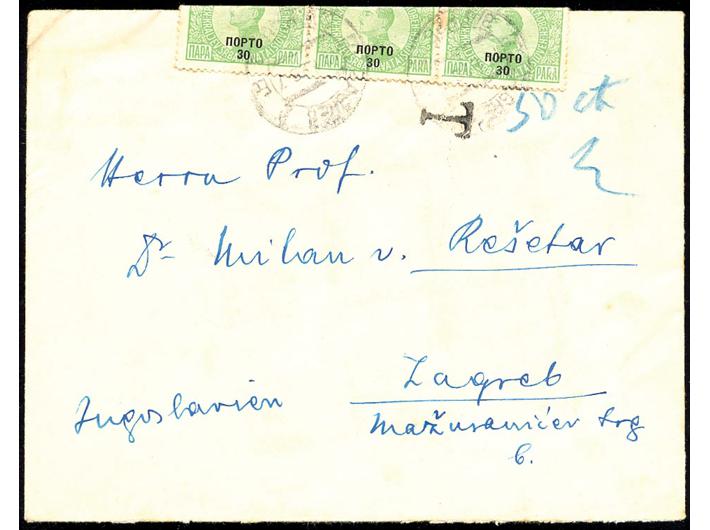 ПОРТО ПОРТО ПОРТО
30 30 30
ПАРА PARA ПАРА PARA ПАРА PARA
T 50 ct
Herrn Prof.
Dr Milan v. Rešetar
Zagreb
Jugoslavien
Mažuranićev trg
6.